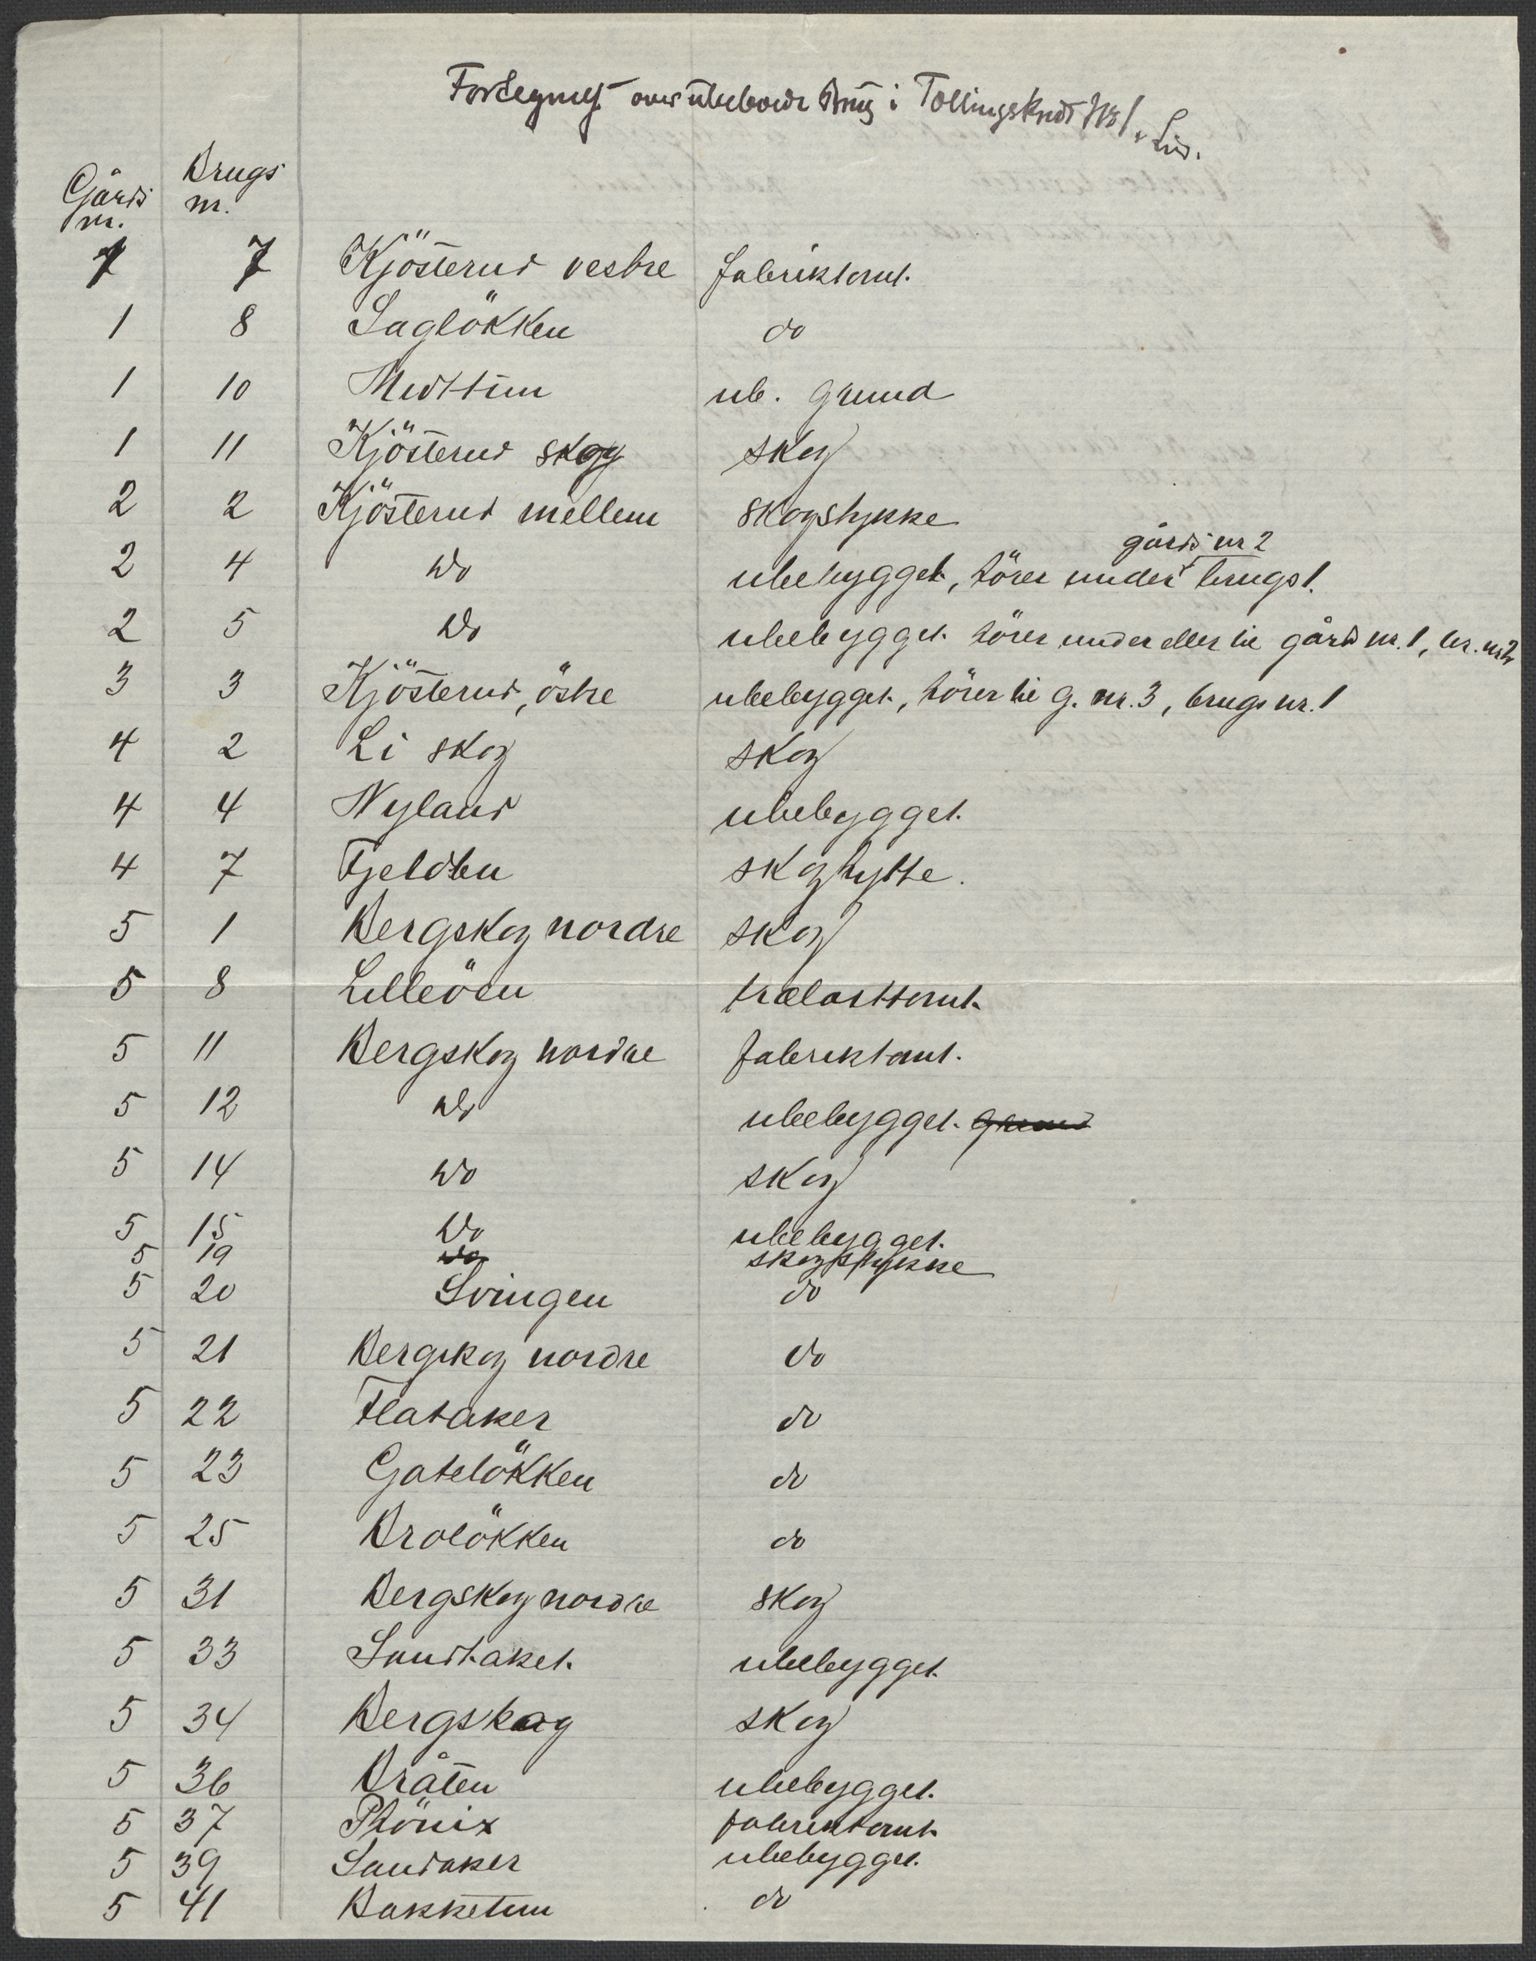 Fortegnelse over ubeboede brug i Tellingskreds No 1. Lier.
Gårds nr. Brugs nr.
1 7 Kjösterud vestre fabriktomt.
1 8 Saglökken do
1 10 Midttun ub. grund
1 11 Kjösterud skog skog
2 2 Kjösterud mellem skogstykke
gårds nr 2
2 4 Do ubebygget, hörer under brugs 1.
2 5 Do ubebygget hörer under eller til gårds nr. 1, br. nr 2
3 3 Kjösterud, östre ubebygget, hörer til g. nr. 3, brugs nr. 1
4 2 Li skog skog
4 4 Nyland ubebygget.
4 7 Fjeldbu skoghytte.
5 1 Bergskog nordre skog
5 8 Lilleösen trælasttomt.
5 11 Bergskog nordre fabriktomt.
5 12 Do ubebygget. grund
5 14 Do skog
5 15 Do ubebygget.
5 19 Do skogstykke
5 20 Svingen do
5 21 Bergskog nordre do
5 22 Flataker do
5 23 Gatelökken do
5 25 Brolökken do
5 31 Bergskog nordre skog
5 33 Sandtaket. ubebygget.
5 34 Bergskog skog
5 36 Bråten ubebygget.
5 37 Phönix fabriktomt.
5 39 Sandaker ubebygget.
5 41 Bakketun do